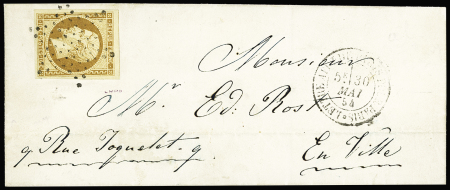 Monsieur
Mr. Ed: Rost
9 Rue Joquelet. 9.
En Ville
30
MAI
54